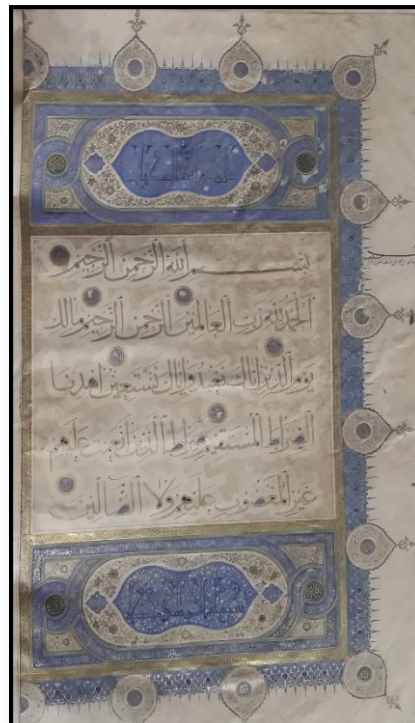 بِسْمِ اللَّهِ الرَّحْمَنِ الرَّحِيمِ
الْحَمْدُ لِلَّهِ رَبِّ الْعَالَمِينَ الرَّحْمَنِ الرَّحِيمِ مَالِكِ
يَوْمِ الدِّينِ إِيَّاكَ نَعْبُدُ وَإِيَّاكَ نَسْتَعِينُ اهْدِنَا
الصِّرَاطَ الْمُسْتَقِيمَ صِرَاطَ الَّذِينَ أَنْعَمْتَ عَلَيْهِمْ
غَيْرِ الْمَغْضُوبِ عَلَيْهِمْ وَلَا الضَّالِّينَ